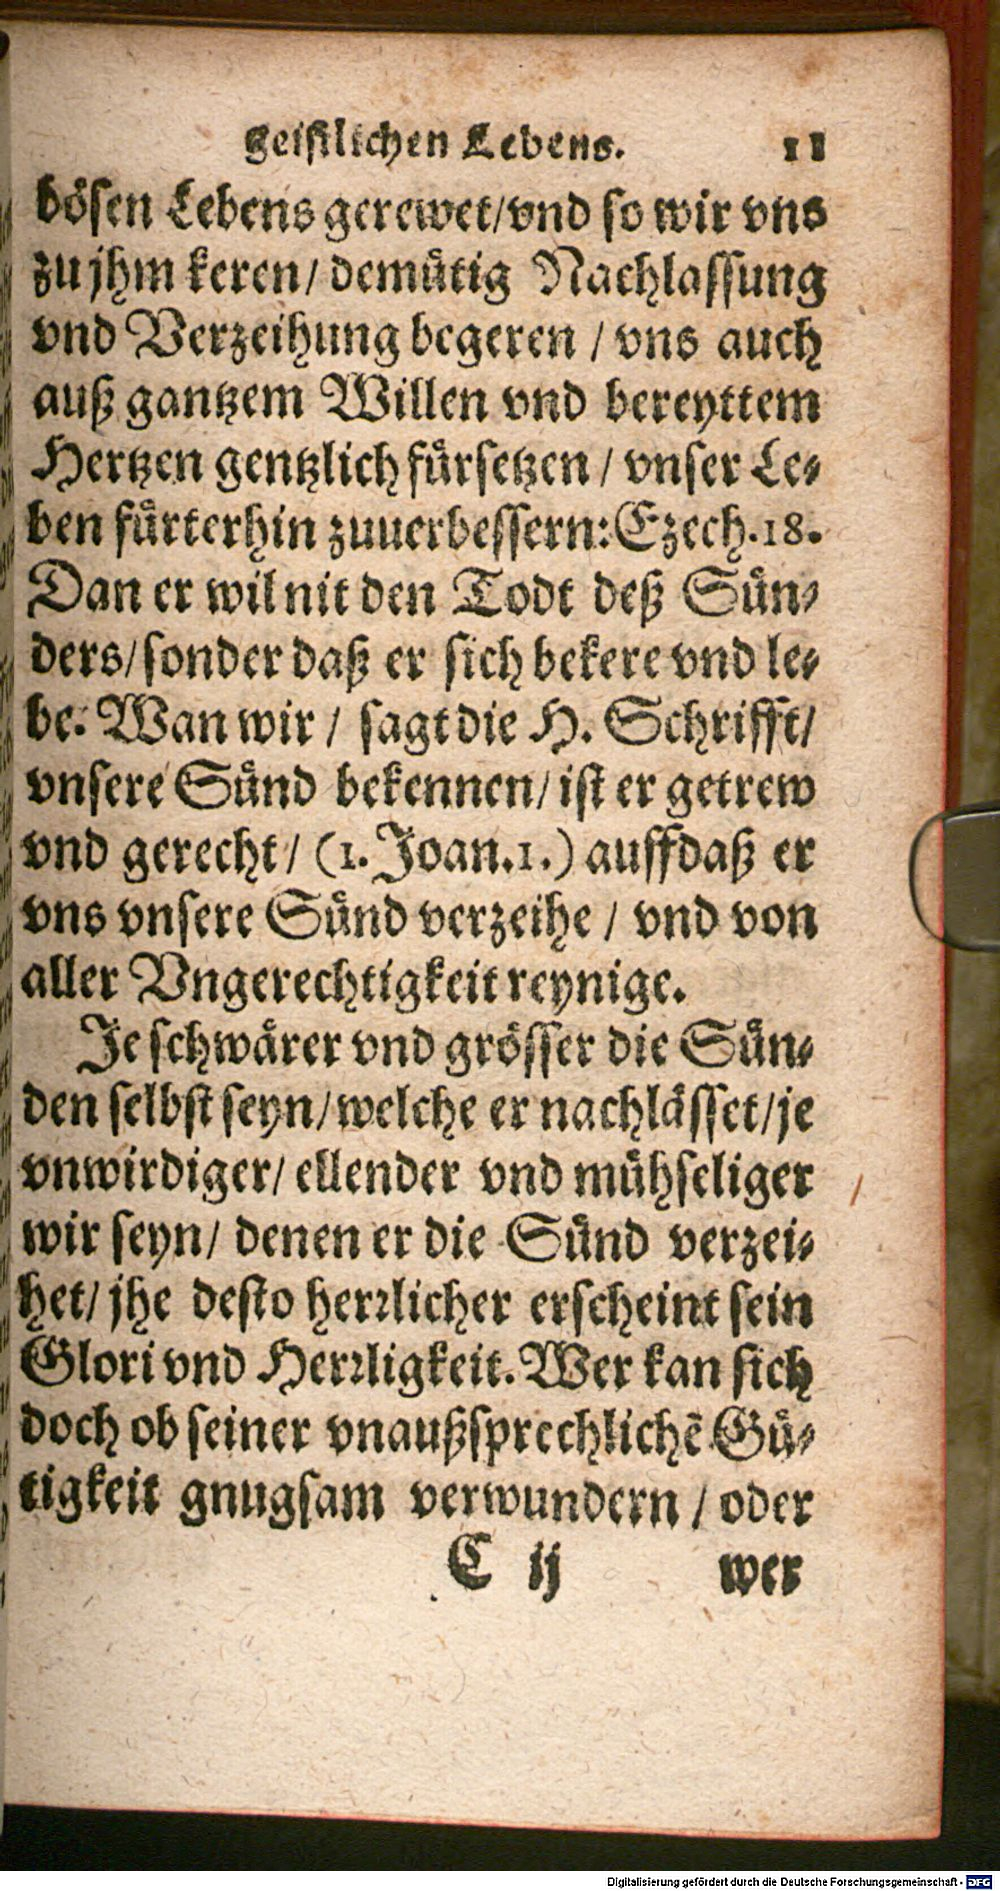 geistlichen Lebens. 11
bösen Lebens gerewet/vnd so wir vns
zu jhm keren/ demütig Nachlassung
vnd Verzeihung begeren / vns auch
auß gantzem Willen vnd bereyttem
Hertzen gentzlich fürsetzen / vnser Le-
ben fürterhin zuuerbessern: Ezech. 18.
Dan er wil nit den Todt deß Sün-
ders/ sonder daß er sich bekere vnd le-
be. Wan wir / sagt die H. Schrifft/
vnsere Sünd bekennen/ ist er getrew
vnd gerecht / (1. Joan. 1.) auffdaß er
vns vnsere Sünd verzeihe / vnd von
aller Vngerechtigkeit reynige.
Je schwärer vnd grösser die Sün-
den selbst seyn/ welche er nachlässet/ je
vnwirdiger/ ellender vnd mühseliger
wir seyn/ denen er die Sünd verzei-
het/ jhe desto herrlicher erscheint sein
Glori vnd Herrligkeit. Wer kan sich
doch ob seiner vnaußsprechlichē Gü-
tigkeit gnugsam verwundern / oder
C ij wer
Digitalisierung gefördert durch die Deutsche Forschungsgemeinschaft - DFG